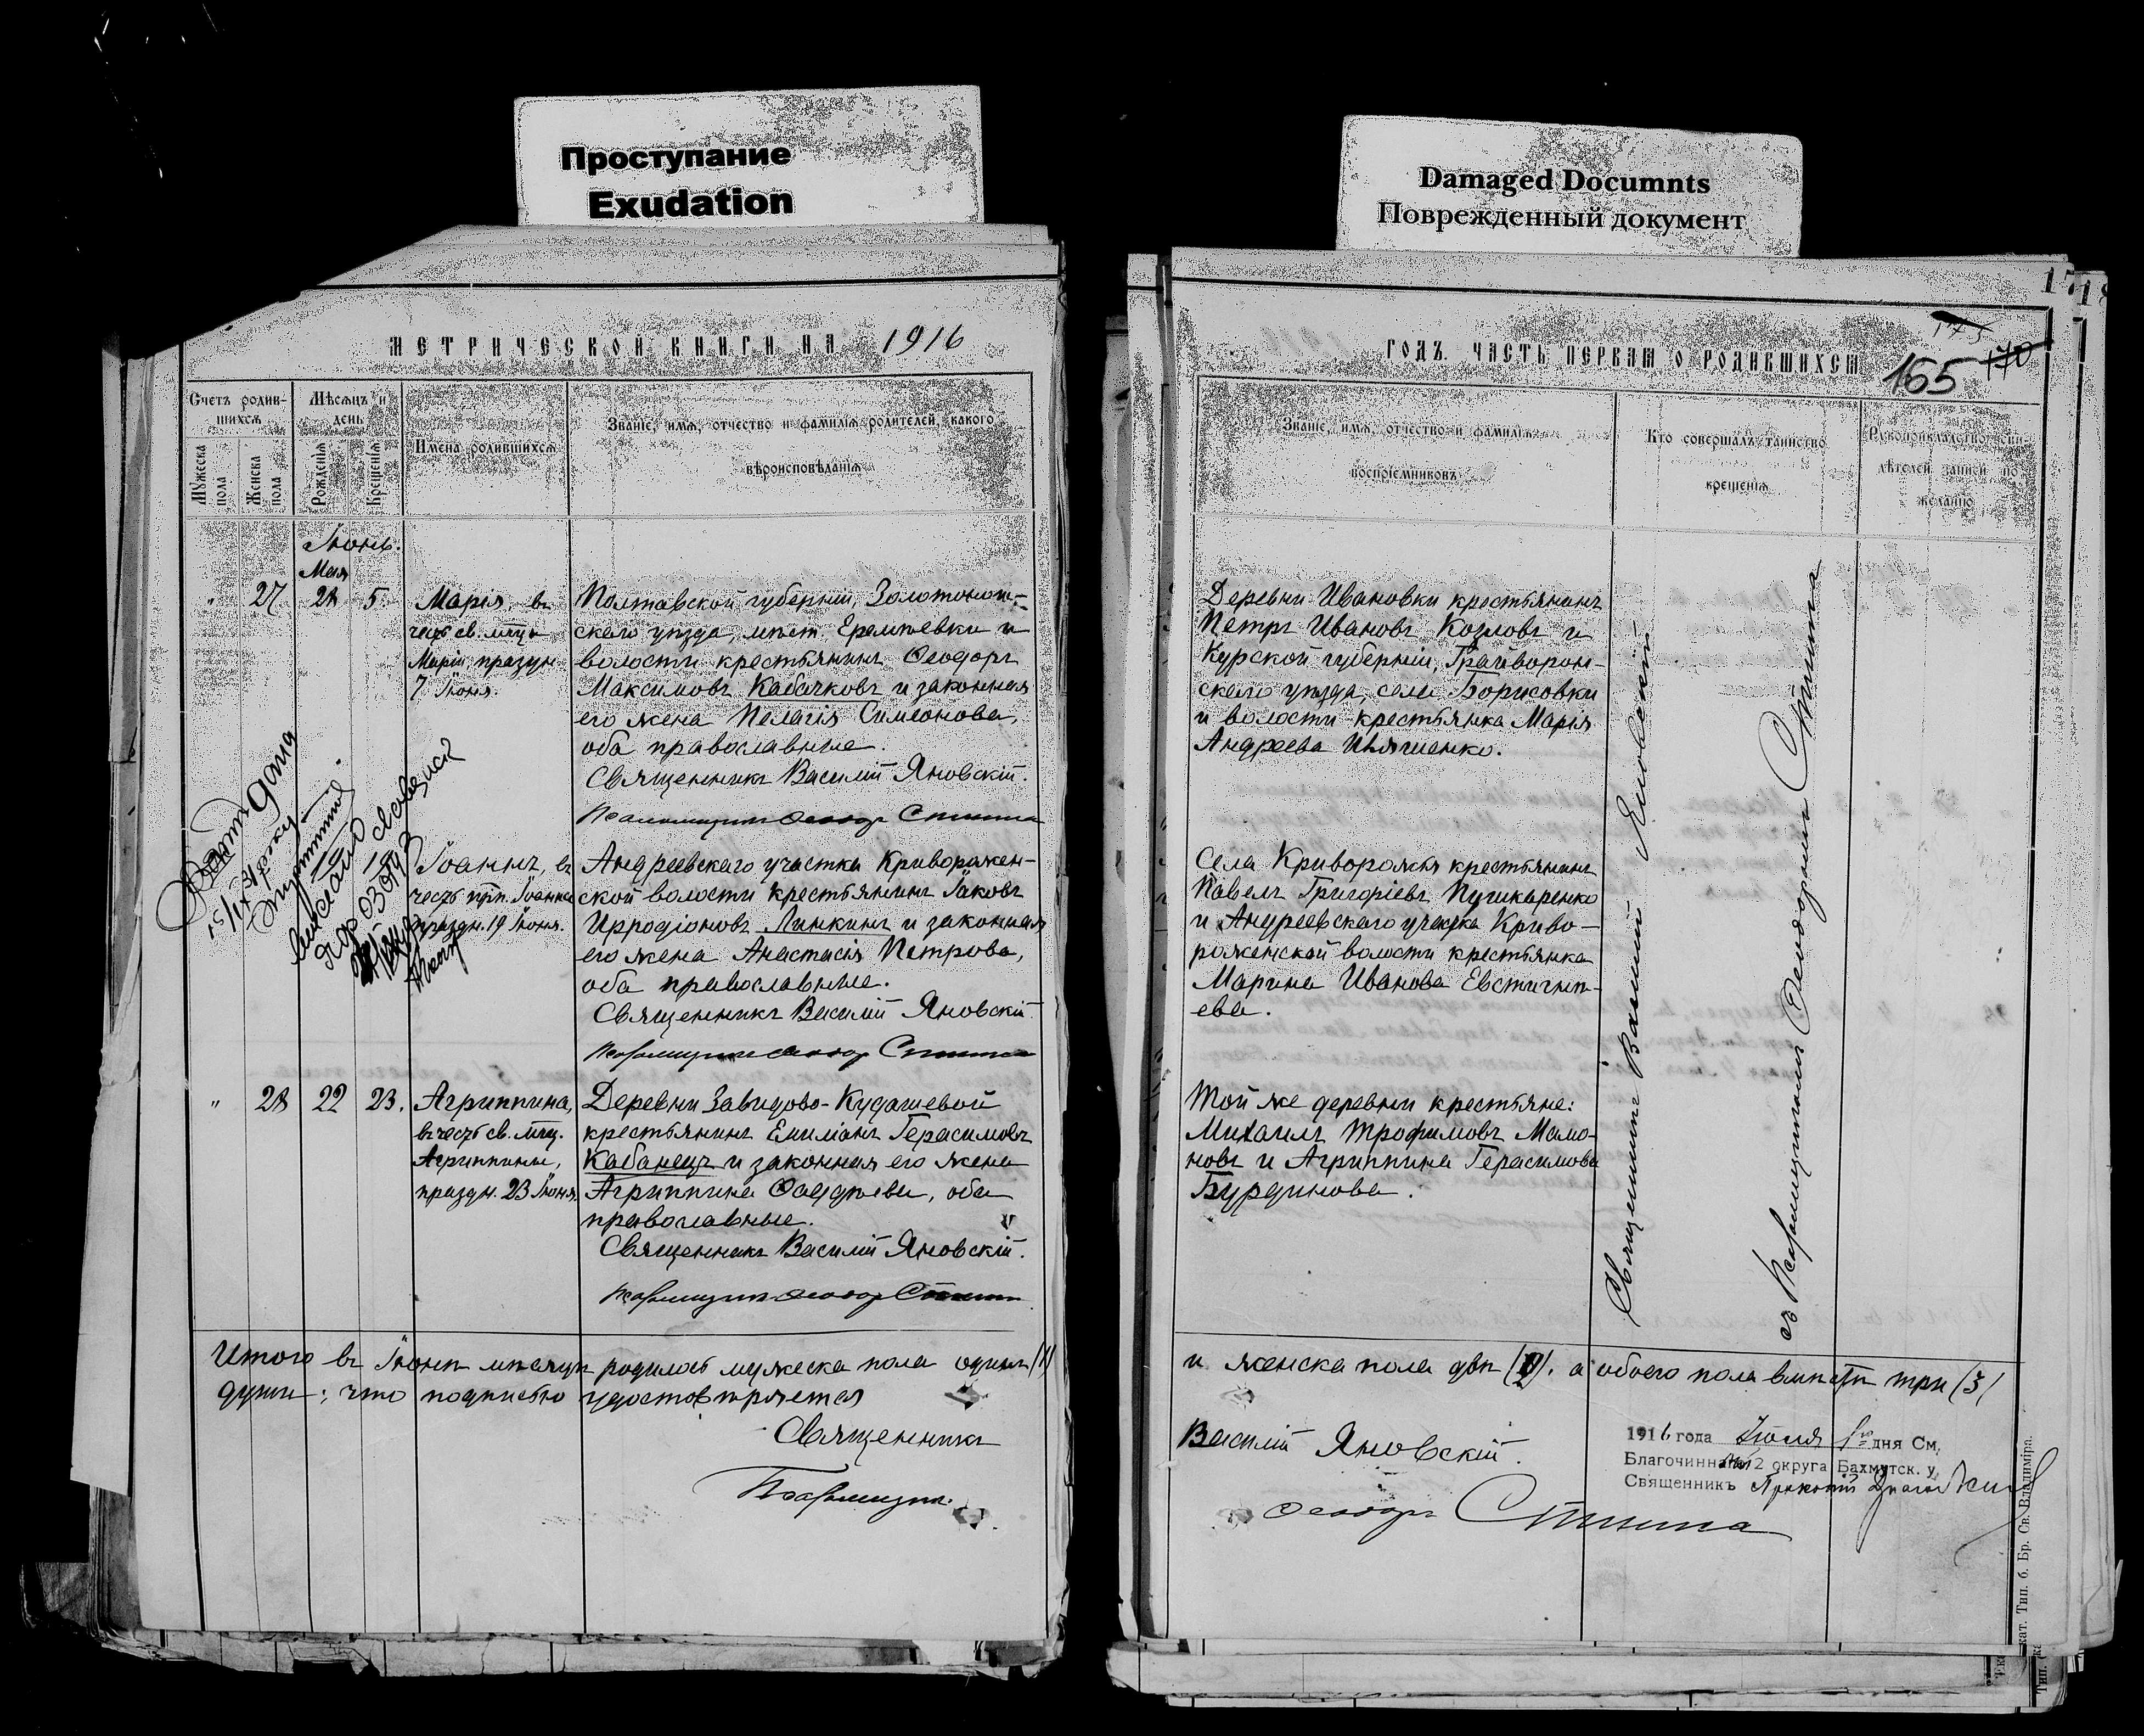 Проступание
Exudation
МЕТРИЧЕСКОЙ КНИГИ НА 1916
Счетъ родив-
шихся
Мѣсяцъ и
день
Мужеска
пола
Женска
пола
Рожденія
Крещенія
Имена родившихся
Званіе, имя, отчество и фамилія родителей, какого
вѣроисповѣданія
Іюнь.
Мая
" 27 28 5
Марія, въ
честь св. мцы
Маріи, праздн.
7 Іюня.
Полтавской губерніи, Золотонош-
скаго уѣзда, мѣст. Еремѣевки и
волости крестьянинъ Ѳеодоръ
Максимовъ Кабачковъ и законная
его жена Пелагія Симеонова,
оба православные.
Священникъ Василій Яновскій.
Псаломщикъ Ѳеодор
Іоаннъ, въ
честь прп. Іоанна
праздн. 19 Іюня.
Андреевскаго участка Криворожен-
ской волости крестьянинъ Іаковъ
Иродіоновъ Линкинъ и законная
его жена Анастасія Петрова,
оба православные.
Священникъ Василій Яновскій
Псаломщикъ Ѳеодор
" 28 22 23.
Агриппина,
въ честь св. мцы.
Агриппины,
праздн. 23 Іюня.
Деревни Завидово-Кудашевой
крестьянинъ Емиліанъ Герасимовъ
Кабанецъ и законная его жена
Агриппина Ѳаддѣева, оба
православные.
Священникъ Василій Яновскій.
Псаломщикъ Ѳеодор
Итого въ Іюнѣ мѣсяцѣ родилось мужеска пола одинъ (1)
души; что подписью удостовѣряется
Священникъ
Псаломщикъ
Damaged Documnts
Поврежденный документ
ГОДЪ. ЧАСТЬ ПЕРВАЯ О РОДИВШИХСЯ
175
165 170
Званіе, имя, отчество и фамилія
воспріемниковъ
Кто совершалъ таинство
крещенія
Рукоприкладство сви-
дѣтелей записи по
желанію
Деревни Ивановки крестьянинъ
Петръ Ивановъ Козловъ и
Курской губерніи, Грайворон-
скаго уѣзда, села Борисовки
и волости крестьянка Марія
Андреева
Села Криворожья крестьянинъ
Павелъ Григоріевъ Пушкаренко
и Андреевскаго участка Криво-
роженской волости крестьянка
Марина Иванова Евстигнѣ-
ева.
Той же деревни крестьяне:
Михаилъ Трофимовъ Мамо-
новъ и Агриппина Герасимова
Бурдинова.
Священникъ Василій Яновскій
съ Псаломщикомъ Ѳеодоромъ
и женска пола двѣ (2). а обоего пола вмѣстѣ три (3)
Василій Яновскій.
Ѳеодоръ
1916 года Іюля 1го дня См.
Благочинный 2 округа Бахмутск. у.
Священникъ
кат. Тип. б. Бр. Св. Владиміра.